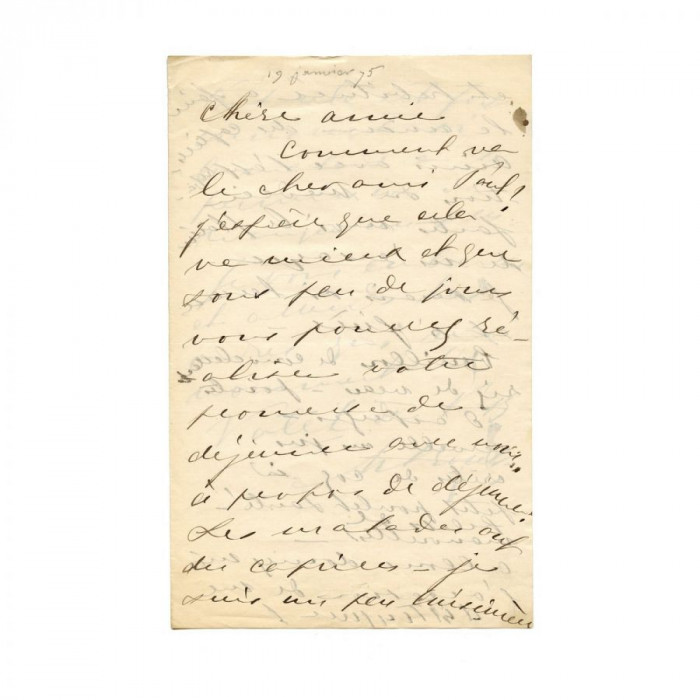 chère amie
comment va
le cher ami Paul!
j'espère que cela
va mieux et que
sous peu de jours
vous pourrez ré-
aliser votre
promesse de
déjeuner avec nous.
à propos de déjeuner
Les malades ont
des caprices – je
suis un peu cuisinière